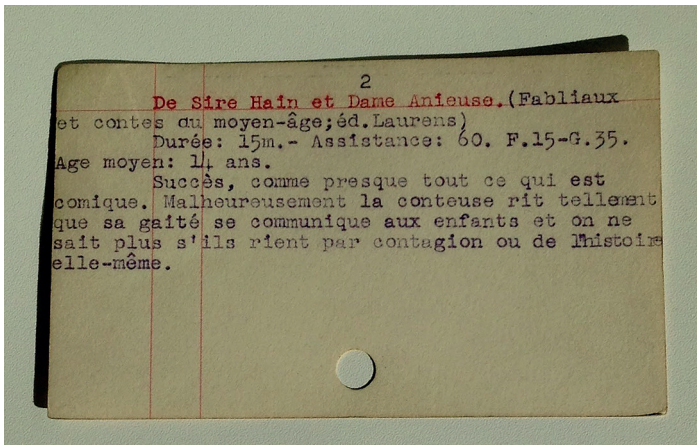 2
De Sire Hain et Dame Anieuse.(Fabliaux
et contes du moyen-âge;éd.Laurens)
Durée: 15m.- Assistance: 60. F.15-G.35.
Age moyen: 14 ans.
Succès, comme presque tout ce qui est
comique. Malheureusement la conteuse rit tellement
que sa gaité se communique aux enfants et on ne
sait plus s'ils rient par contagion ou de l'histoire
elle-même.